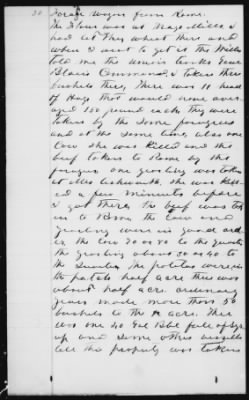 20 Forage wagon from Rome.
The flour was at Hargroves Mill I
had let They wheat there and
when I went to get it the Miller
told me the Union troops Genl
Blairs Command, & taken three
bushels there, There was 11 head
of Hogs that would average
150 pounds each they were
taken by the same foragers
and at the same time, also one
Cow she was killed and the
beef taken to Rome by the
forage one yearling was taken
at Mrs she was Kill
ed a few minutes before
I got there, the beef was ta
in to Rome the Cow and
yearling were in good ord
er, the Cow 70 or 80 to the quarter
the yearling about 30 or 40 to
the quarter. The potatoes were in
the patch half acre there was
about half acre ordinary
years made more than 50
bushels to the acre. There
was one 40 Gal Bbl full of Sy
up and some other vessels
all this property was taken